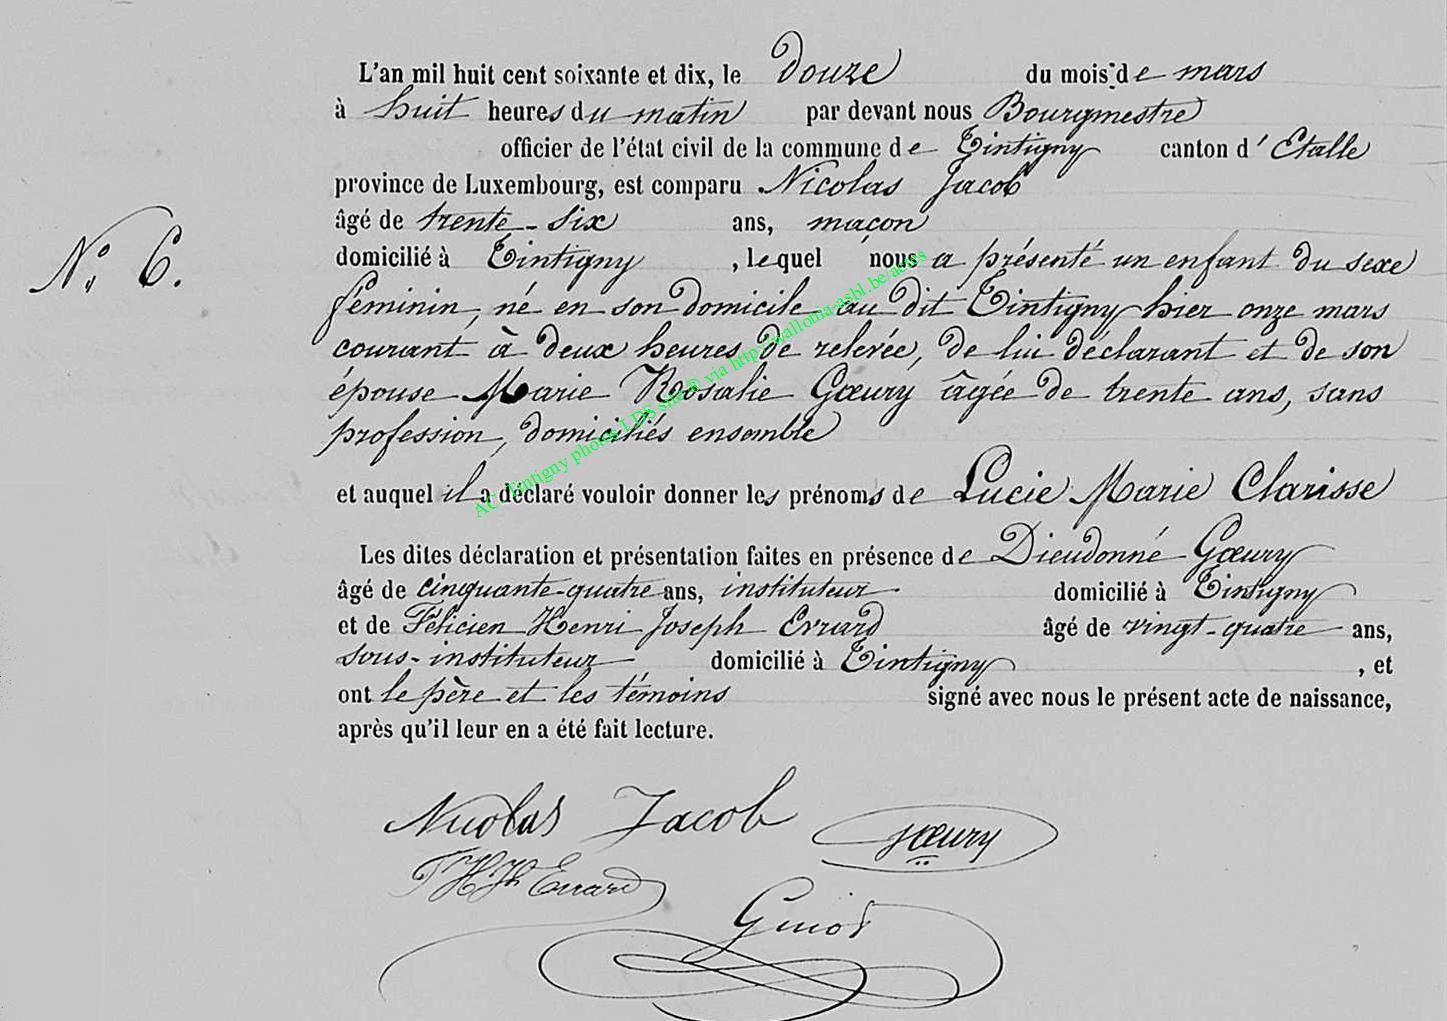 L'an mil huit cent soixante et dix, le douze du mois de mars
à huit heures du matin par devant nous Bourgmestre
officier de l'état civil de la commune de Tintigny canton d'Etalle
province de Luxembourg, est comparu Nicolas Jacob
âgé de trente-six ans, maçon
N° 6.
domicilié à Tintigny, lequel nous a présenté un enfant du sexe
féminin, né en son domicile au dit Tintigny hier onze mars
courant à deux heures de relevée, de lui déclarant et de son
épouse Marie Rosalie Gœury âgée de trente ans, sans
profession, domiciliés ensemble
et auquel il a déclaré vouloir donner les prénoms de Lucie Marie Clarisse
Les dites déclaration et présentation faites en présence de Dieudonné Gœury
âgé de cinquante-quatre ans, instituteur domicilié à Tintigny
et de Félicien Henri Joseph Errard âgé de vingt-quatre ans,
sous-instituteur domicilié à Tintigny, et
ont le père et les témoins signé avec nous le présent acte de naissance,
après qu'il leur en a été fait lecture.
Nicolas Jacob Gœury
F H Jh Errard
Guiot
AC Tintigny photos LDS via http://wallonia-asbl.be/actes